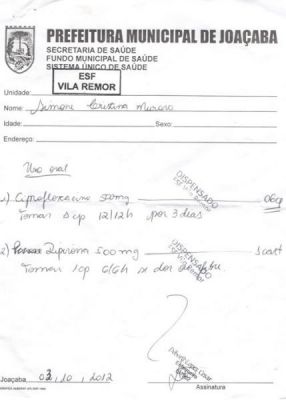 PREFEITURA MUNICIPAL DE JOAÇABA
SECRETARIA DE SAÚDE
FUNDO MUNICIPAL DE SAÚDE
SISTEMA ÚNICO DE SAÚDE
ESF
VILA REMOR
Unidade:
Nome: Simone Cristina
Idade: Sexo:
Endereço:
Uso oral
DISPENSADO
1) Ciprofloxacino 500mg 06cp
Tomar 1cp 12/12h por 3 dias
DISPENSADO
2) Dipirona 500mg
Tomar 1cp 6/6h se dor
Joaçaba 03, 10, 2012
Assinatura